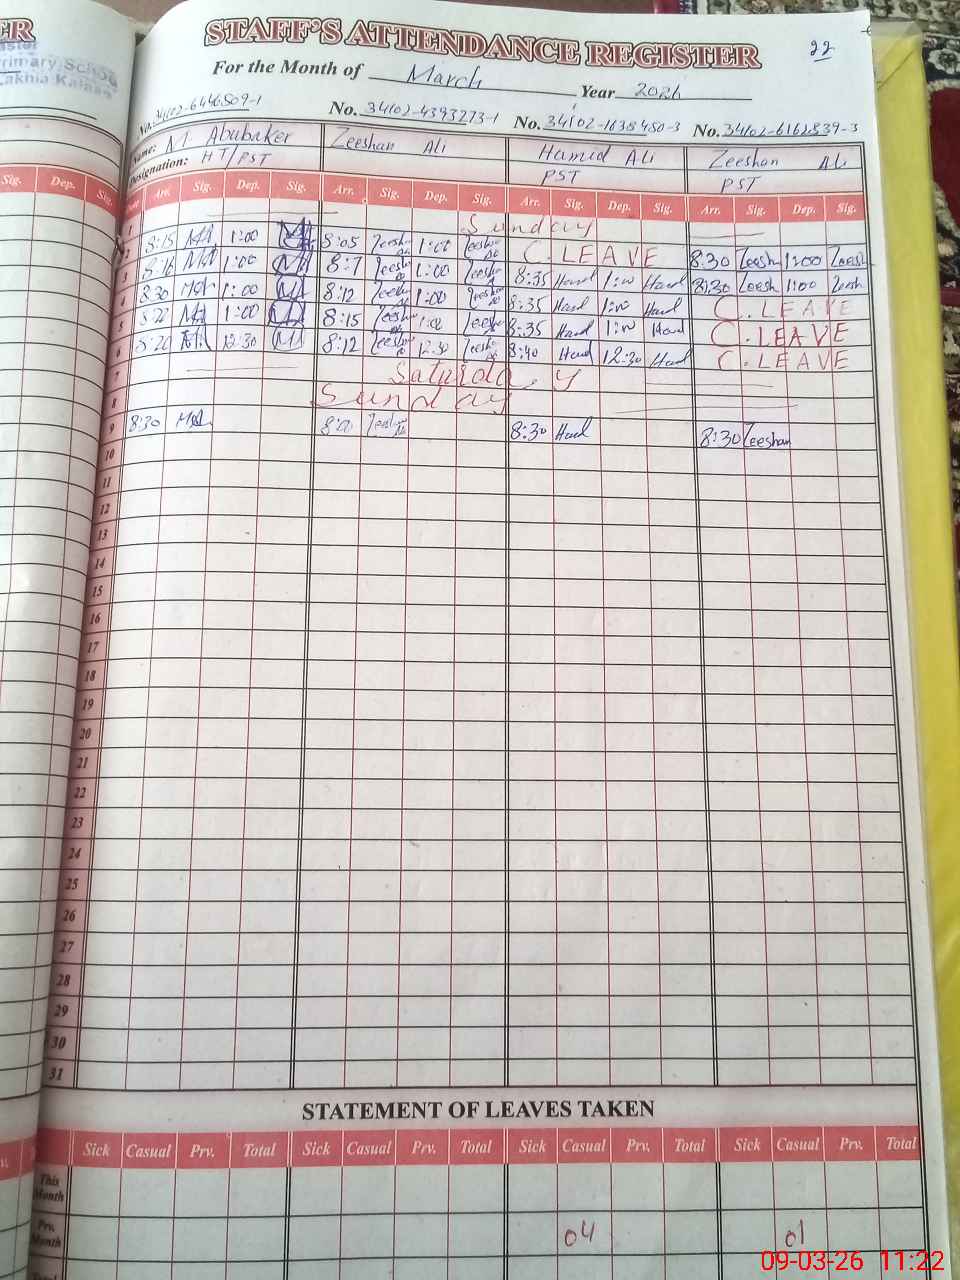 ER
Primary School
Lakhia Kalaan
STAFF'S ATTENDANCE REGISTER
22
For the Month of March Year 2026
No. 34102-6446509-1 No. 34102-4393273-1 No. 34102-1638450-3 No. 34102-6162839-3
Name: M Abubaker Zeeshan Ali Hamid Ali Zeeshan Ali
Designation: HT/PST PST PST
Sig. Dep. Sig. Date Arr. Sig. Dep. Sig. Arr. Sig. Dep. Sig. Arr. Sig. Dep. Sig. Arr. Sig. Dep. Sig.
1 Sunday
2 8:15 1:00 8:05 Zeeshan 1:00 Zeeshan C. LEAVE 8:30 Zeesh 1:00 Zeesh
3 8:16 1:00 8:7 Zeeshan 1:00 Zeeshan 8:35 Hamd 1:00 Hamd 8:30 Zeesh 1:00 Zeesh
4 8:30 1:00 8:12 Zeeshan 1:00 Zeeshan 8:35 Hamd 1:00 Hamd C. LEAVE
5 1:00 8:15 Zeeshan 1:00 Zeeshan 8:35 Hamd 1:00 Hamd C. LEAVE
6 8:20 12:30 8:12 Zeeshan 12:30 Zeeshan 8:40 Hamd 12:30 Hamd C. LEAVE
7 Saturday
8 Sunday
9 8:30 8:00 Zeeshan 8:30 Hamd 8:30 Zeeshan
10
11
12
13
14
15
16
17
18
19
20
21
22
23
24
25
26
27
28
29
30
31
STATEMENT OF LEAVES TAKEN
Prv. Sick Casual Prv. Total Sick Casual Prv. Total Sick Casual Prv. Total Sick Casual Prv. Total
This Month
Prv. Month 04 01
Total
09-03-26 11:22